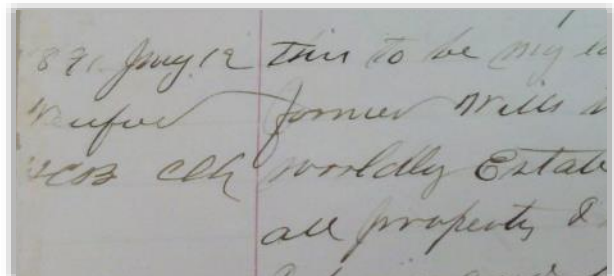 891 Jany 12 this to be my
former Wills
HCB Clk worldly Estate
all property I